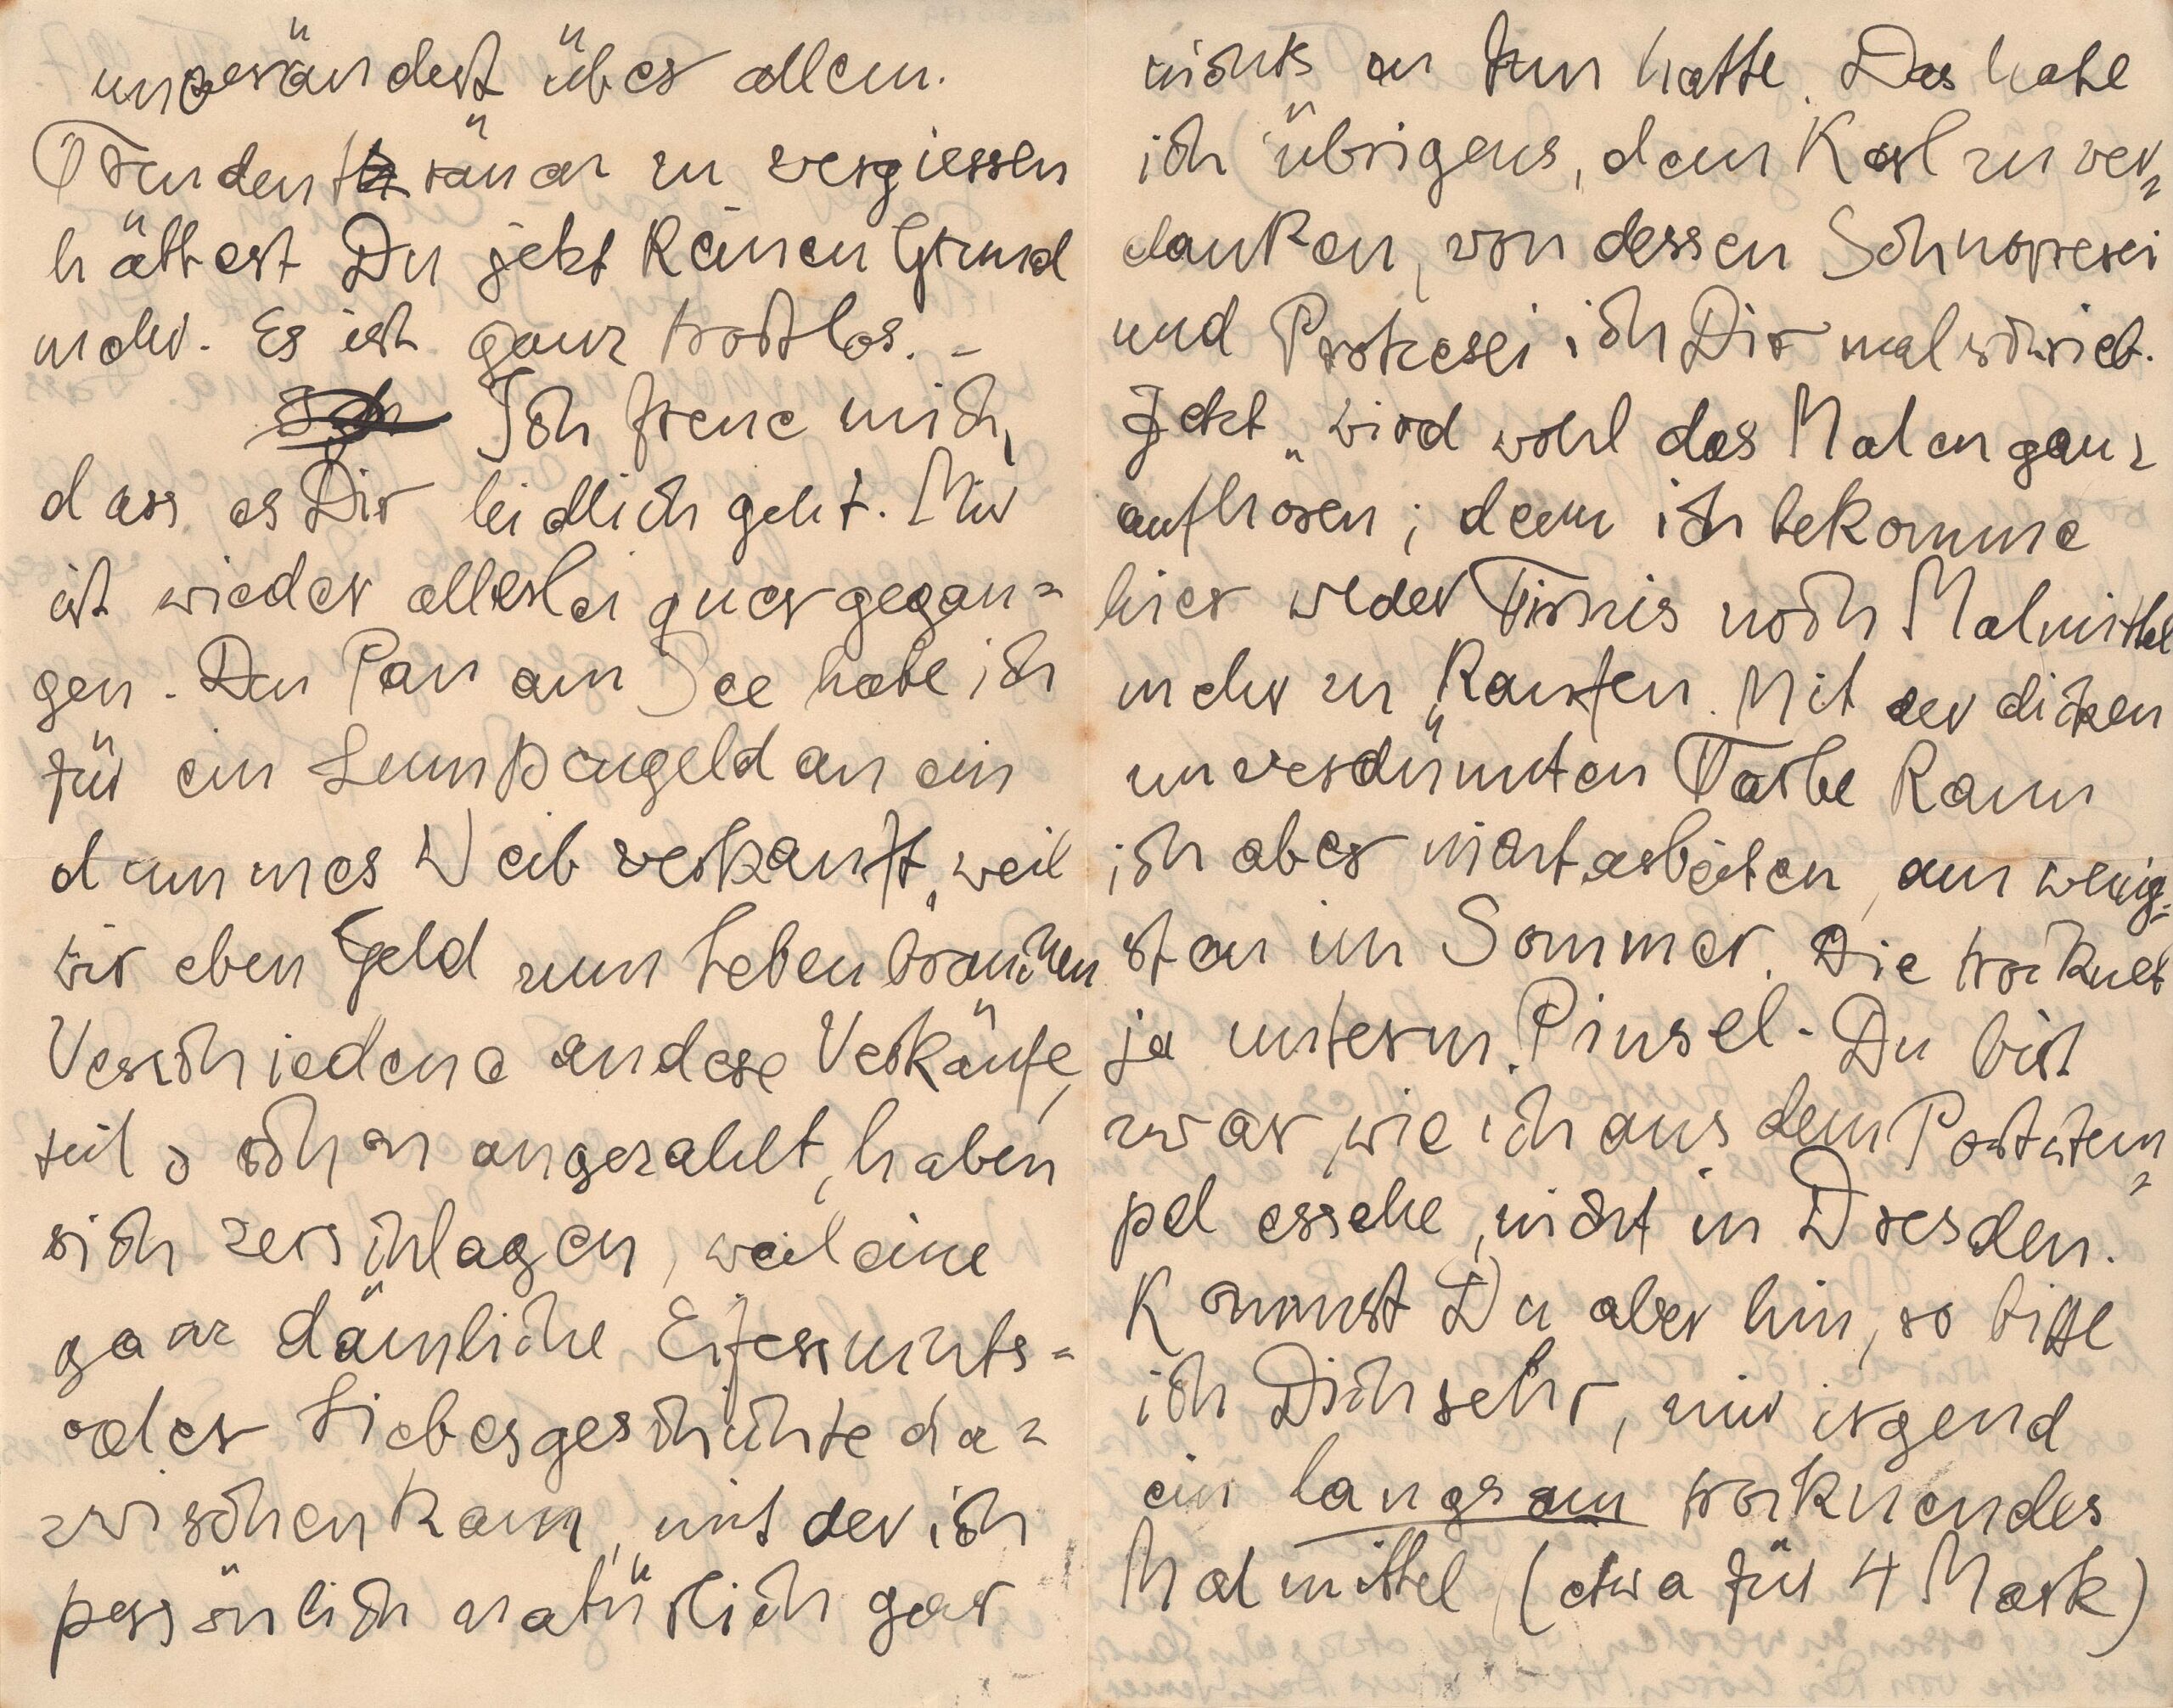 ungerändert über allem.
Freudenträнen zu vergiessen
hättest Du jetzt keinen Grund
mehr. Es ist ganz trostlos. –
Ich freue mich,
dass es Dir leidlich geht. Mir
ist wieder allerlei quer gegan=
gen. Den Pan am See habe ich
für ein Lumpengeld an ein
dummes Weib verkauft, weil
wir eben Geld zum Leben brauchen
Verschiedene andere Verkäufe,
teils schon angezahlt, haben
sich zerschlagen, weil eine
ganz dämliche Eifersuchts=
oder Liebesgeschichte da=
zwischen kam, mit der ich
persönlich natürlich gar
nichts zu tun hatte. Das habe
ich übrigens, dem Karl zu ver=
danken, von dessen Schnorrerei
und Protzerei ich Dir mal schrieb.
Jetzt wird wohl das Malen ganz
aufhören; denn ich bekomme
hier weder Firnis noch Malmittel
mehr zu kaufen. Mit der dicken
unverdünnten Farbe kann
ich aber nicht arbeiten, am wenig=
sten im Sommer. Die trocknet
ja unterm Pinsel. Du bist
zwar, wie ich aus dem Poststem=
pel ersehe, nicht in Dresden.
Kommst Du aber hin, so bitte
ich Dich sehr, mir irgend
ein langsam trocknendes
Malmittel (etwa für 4 Mark)